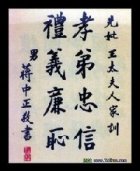 先妣王太夫人家訓
孝弟忠信
禮義廉恥
男
蔣中正敬書